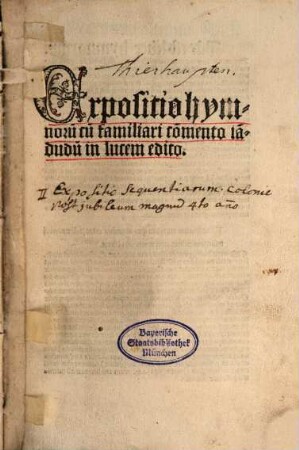 Thierhaupten.
Expositio hym-
norū cū familiari cōmento iā-
dudū in lucem edito.
II Expositio sequentiarum Colonie
post jubileum magnū 4to año
Bayerische
Staatsbibliothek
München